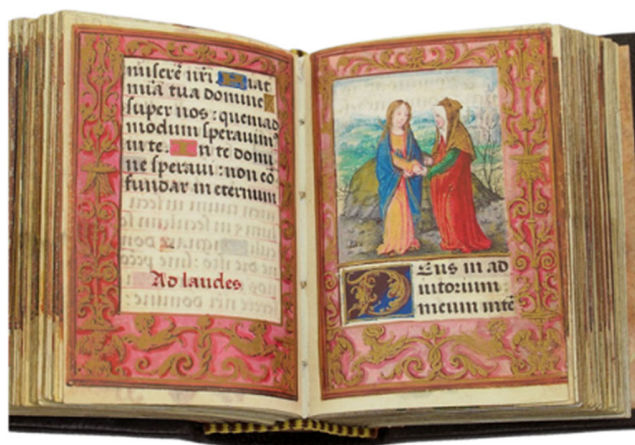 miserē nri. Fiat
mīa tua domine
super nos: quemad
modum speravimꝰ
in te. In te domi
ne speravi: non cō
fundar in eternum
Ad laudes.
Deus in ad
iutorium
meum intē